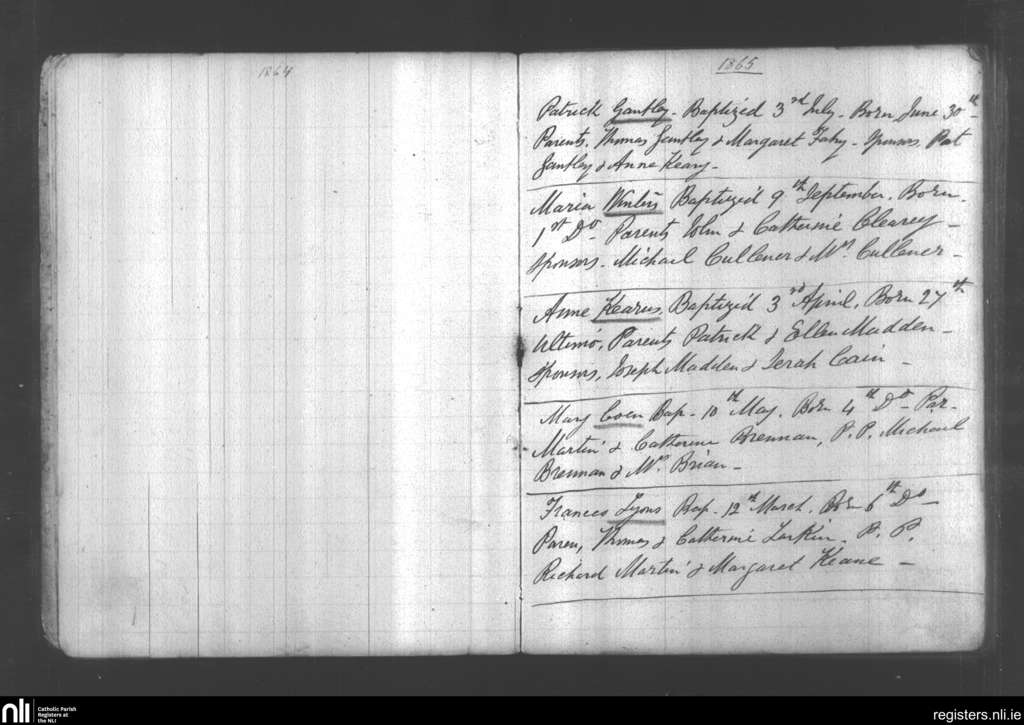 1864
1865
Patrick Gantley. Baptized 3rd July. Born June 30th
Parents. Thomas Gantley & Margaret Fahy. Sponsors. Pat
Gantley & Anne Keary.
Maria Baptized 9th September. Born
1st Do. Parents John & Catherine Cleary
Sponsors. Michael Cullener & Mrs. Cullener
Anne Kearns. Baptized 3rd April. Born 27th
Ultimo. Parents Patrick & Ellen Madden
Sponsors, Joseph Madden & Serah Cain
Mary Coen Bap. 10th May. Born 4th Do Par.
Martin & Catherine Brennan, P.P. Michael
Brennan & Mrs. Brian
Frances Lyons Bap. 12th March. Born 6th Do
Paren, Thomas & Catherine Larkin. P.P.
Richard Martin & Margaret Keane
nli Catholic Parish
Registers at
the NLI
registers.nli.ie